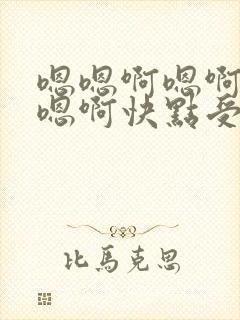 嗯嗯啊嗯啊
嗯啊快點受
比馬克思